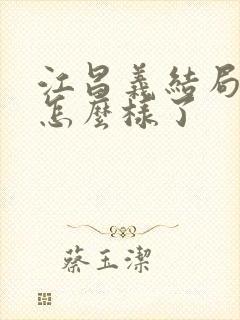 江昌義結局
怎麼樣了
蔡玉潔